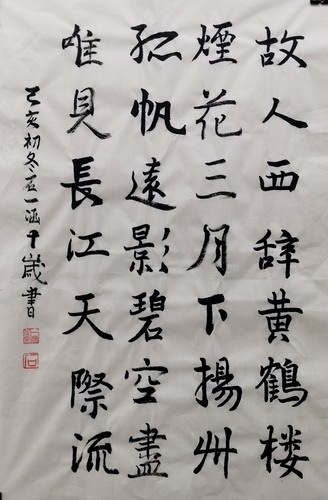 故人西辞黄鹤楼
煙花三月下揚州
孤帆遠影碧空盡
唯見長江天際流
己亥初冬石一涵十歲書